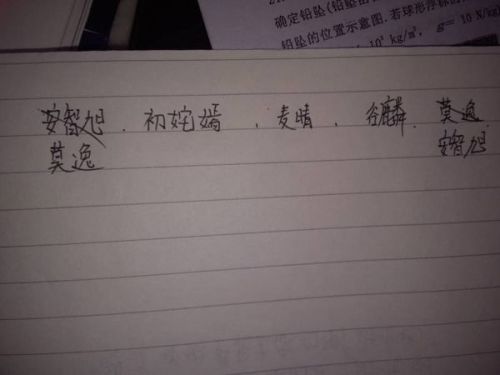 确定铅坠(铅坠
铅坠的位置示意图.若球形浮标的
10³ kg/m³, g= 10 N/kg
安智旭.初姹嫣,麦晴.谷麟.莫逸
莫逸
安智旭